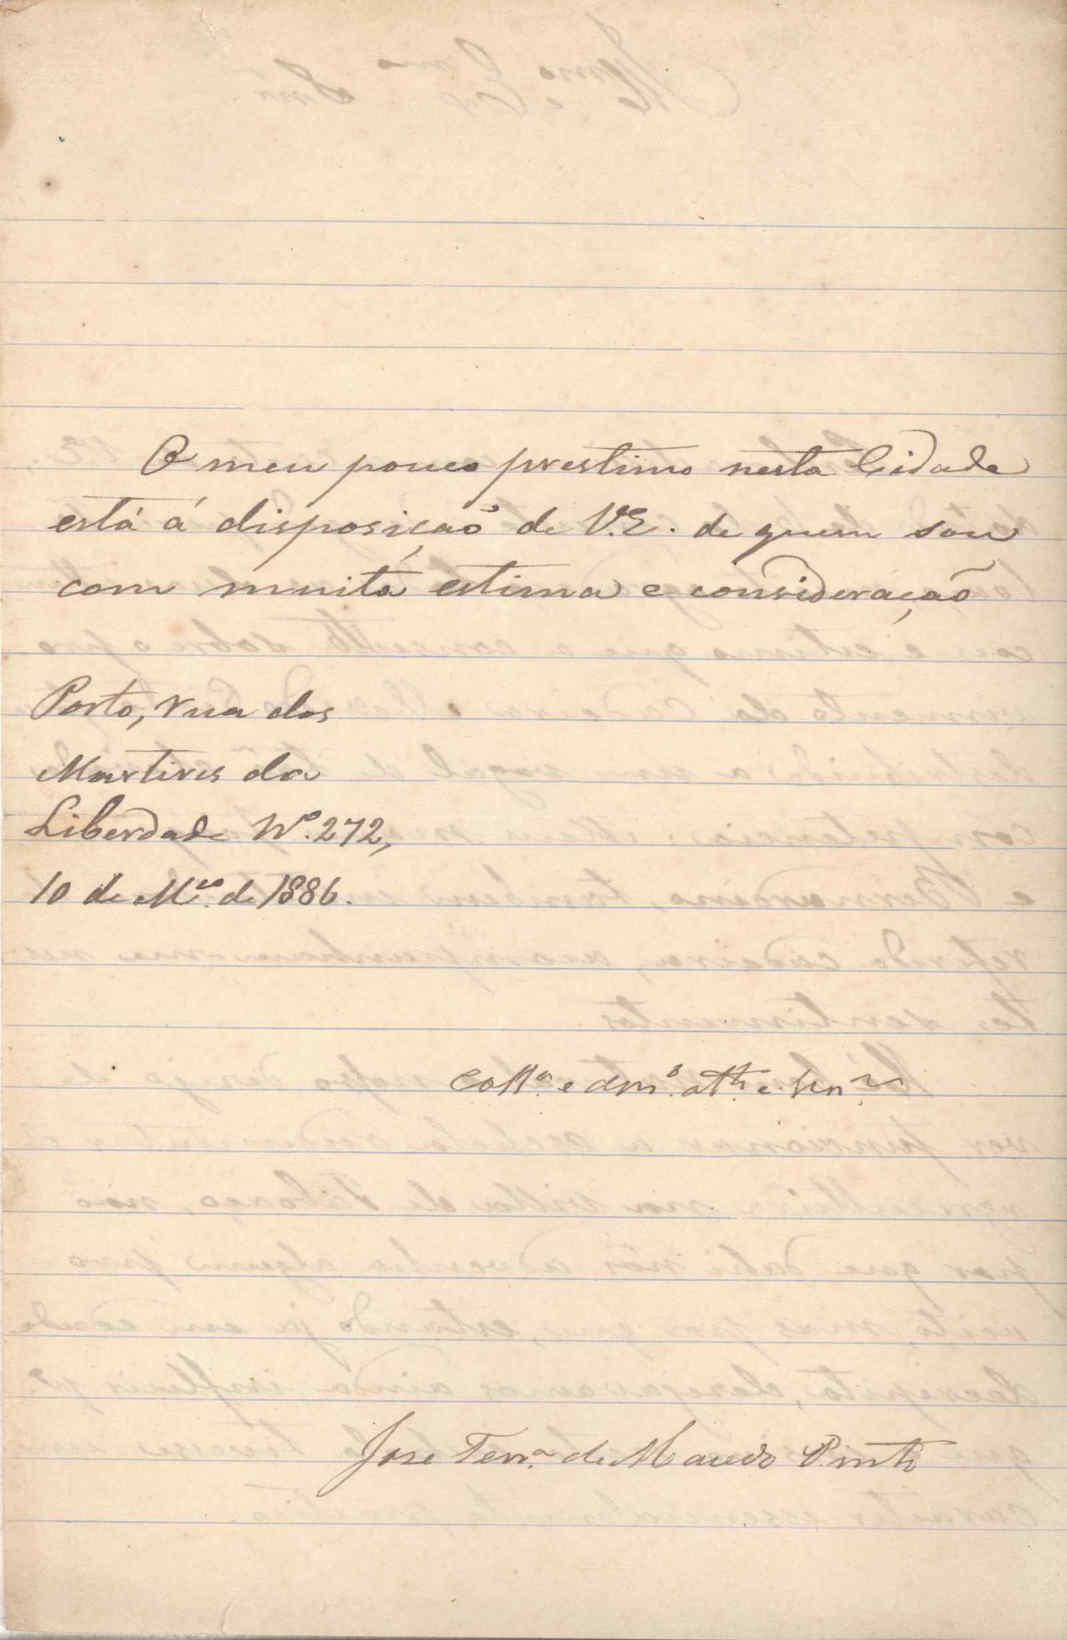 O meu pouco prestimo nesta Cidade
está á disposiçaõ de V.E. de quem sou
com muita estima e consideração
Porto, rua dos
Martires da
Liberdade Nº. 272,
10 de Mço. de 1886.
Collª. e amº. attº. e
José Ferrª. de Macedo Pinto